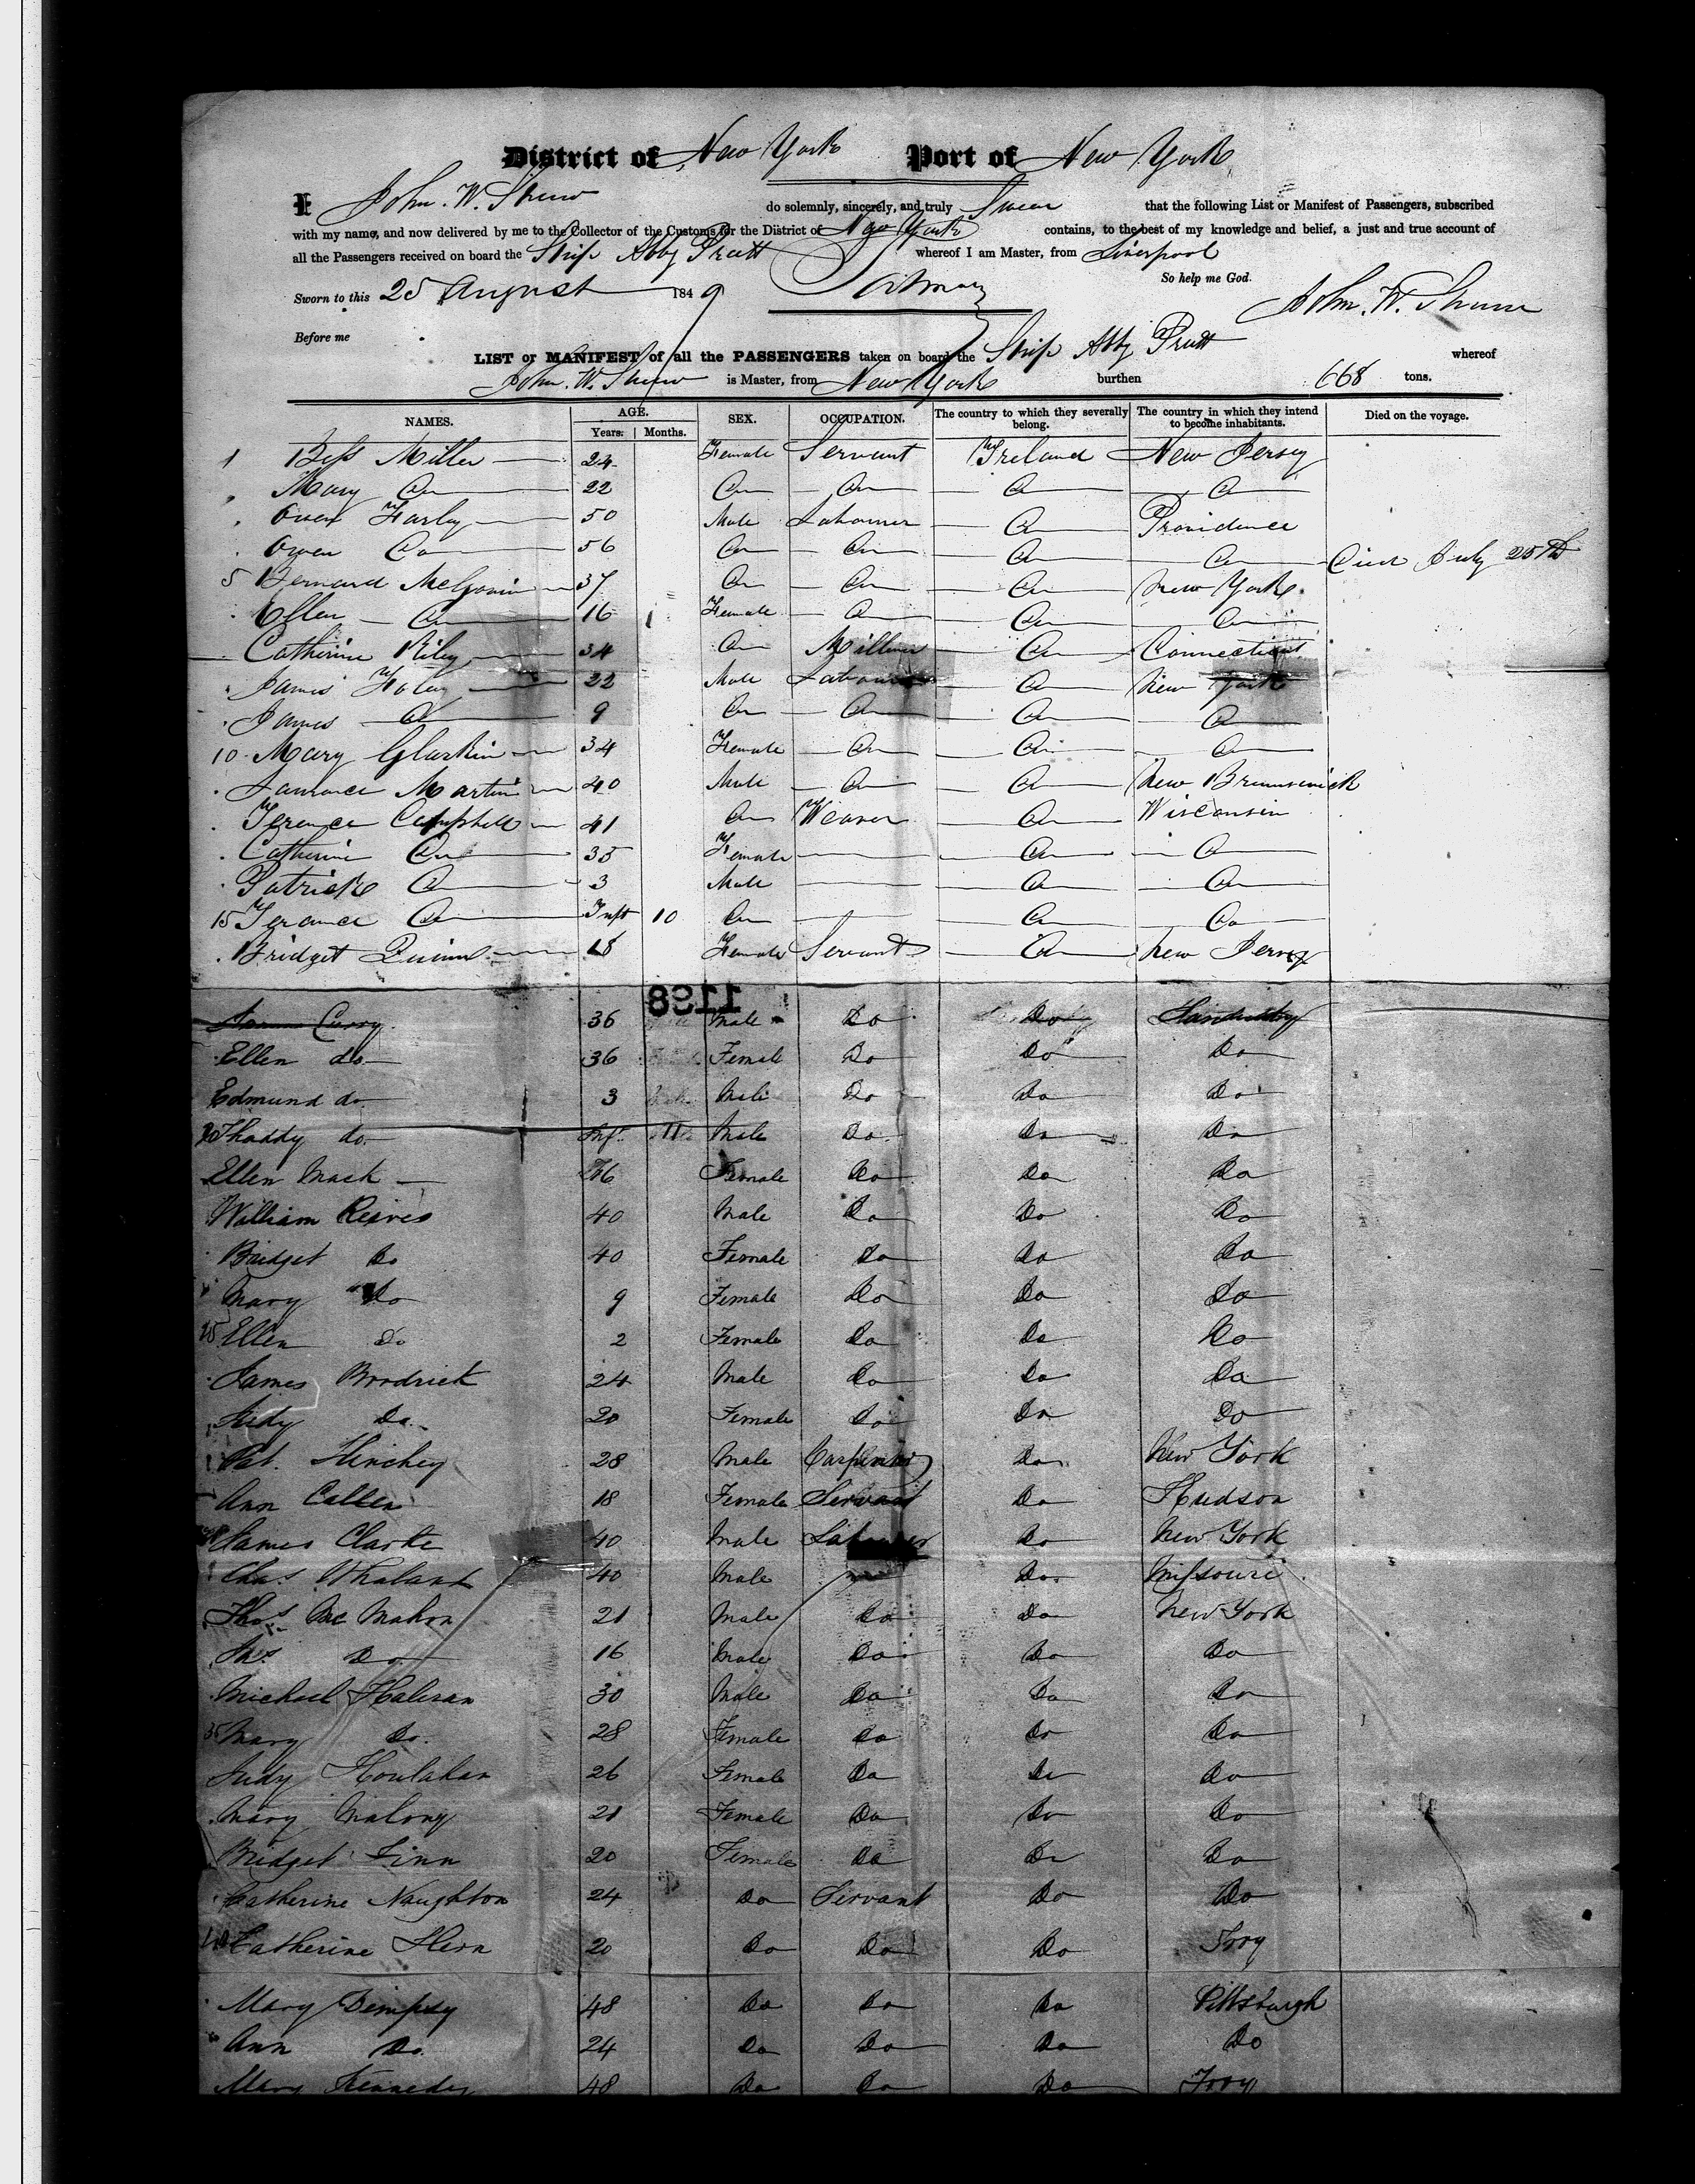 District of New York Port of New York
I John. W. Shaw do solemnly, sincerely, and truly Swear that the following List or Manifest of Passengers, subscribed
with my name, and now delivered by me to the Collector of the Customs for the District of New York contains, to the best of my knowledge and belief, a just and true account of
all the Passengers received on board the Ship Abby Pratt whereof I am Master, from Liverpool
So help me God.
Sworn to this 25 August 1849 John. W. Shaw
Before me
LIST or MANIFEST of all the PASSENGERS taken on board the Ship Abby Pratt whereof
John. W. Shaw is Master, from New York burthen 668 tons.
NAMES. AGE. Years. Months. SEX. OCCUPATION. The country to which they severally belong. The country in which they intend to become inhabitants. Died on the voyage.
1 Bess Miller 24 Female Servant Ireland New Jersey
Mary Do 22 Do Do Do Do
Owen Farley 50 Male Labourer Do Providence
Owen Do 56 Do Do Do Do Died July 25th
5 Bernard McGovin 37 Do Do Do New York
Ellen Do 16 Female Do Do Do
Catherine Riley 34 Do Milliner Do Connecticut
James Foley 22 Male Labourer Do New York
James Do 9 Do Do Do Do
10 Mary Glarkin 34 Female Do Do Do
Laurance Martin 40 Male Do Do New Brunswick
Terence Campbell 41 Do Weaver Do Wisconsin
Catherine Do 35 Female Do Do
Patrick Do 3 Male Do Do
15 Terance Do Inft 10 Do Do Do
Bridget Quinn 18 Female Servant Do New Jersey
1198
Curry 36 Male Do Do
Ellen do 36 Female Do Do Do
Edmund do 3 Male Do Do Do
20 Thaddy do. Inft 11 Male Do Do Do
Ellen Mack 76 Female Do Do Do
William Reaves 40 Male Do Do Do
Bridget Do 40 Female Do Do Do
Mary Do 9 Female Do Do Do
25 Ellen Do 2 Female Do Do Do
James Brodrick 24 Male Do Do Do
Judy Do. 20 Female Do Do Do
Pat. Hinchey 28 Male Carpenter Do New York
Ann Callen 18 Female Servant Do Hudson
James Clarke 40 Male Labourer Do New York
Chas Whalant 40 Male Do. Missouri
Thos Mc Mahon 21 Male Do Do New York
Do 16 Male Do Do Do
Michael Haleran 30 Male Do Do Do
35 Mary Do. 28 Female Do Do Do
Judy Houlahan 26 Female Do Do Do
Mary Malony 21 Female Do Do Do
Bridget Finn 20 Female Do Do Do
Catherine Naughton 24 Do Servant Do Do
40 Catherine Hern 20 Do Do Do Troy
Mary Dempsy 48 Do Do Do Pittsburgh
Ann Do. 24 Do Do Do Do
Mary Kennedy 48 Do Do Do Troy